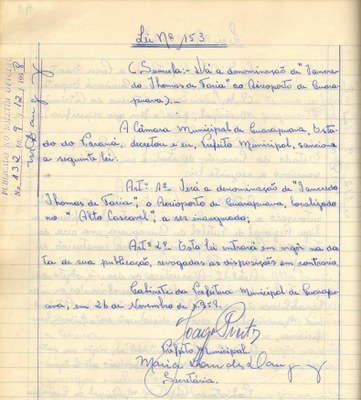 Lei Nº 153
(Súmula:- Dá a denominação de "Tancredo
Thomas de Faria" ao Aeroporto de Guara-
puava).-
A Câmara Municipal de Guarapuava, Esta-
do do Paraná, decretou e eu, Prefeito Municipal, sanciono
a seguinte lei:
Artº 1º Terá a denominação de "Tancredo
Thomas de Faria", o Aeroporto de Guarapuava, localizado
no "Alto Cascavel", a ser inaugurado;
Artº 2º Esta lei entrará em vigôr na da-
ta de sua publicação, revogadas as disposições em contrario
Gabinete da Prefeitura Municipal de Guarapu-
ava, em 26 de Novembro de 1958.
Prefeito Municipal
Maria
Secretária.
PUBLICADO NO BOLETIM OFICIAL
No. 132 de 9/12/1958